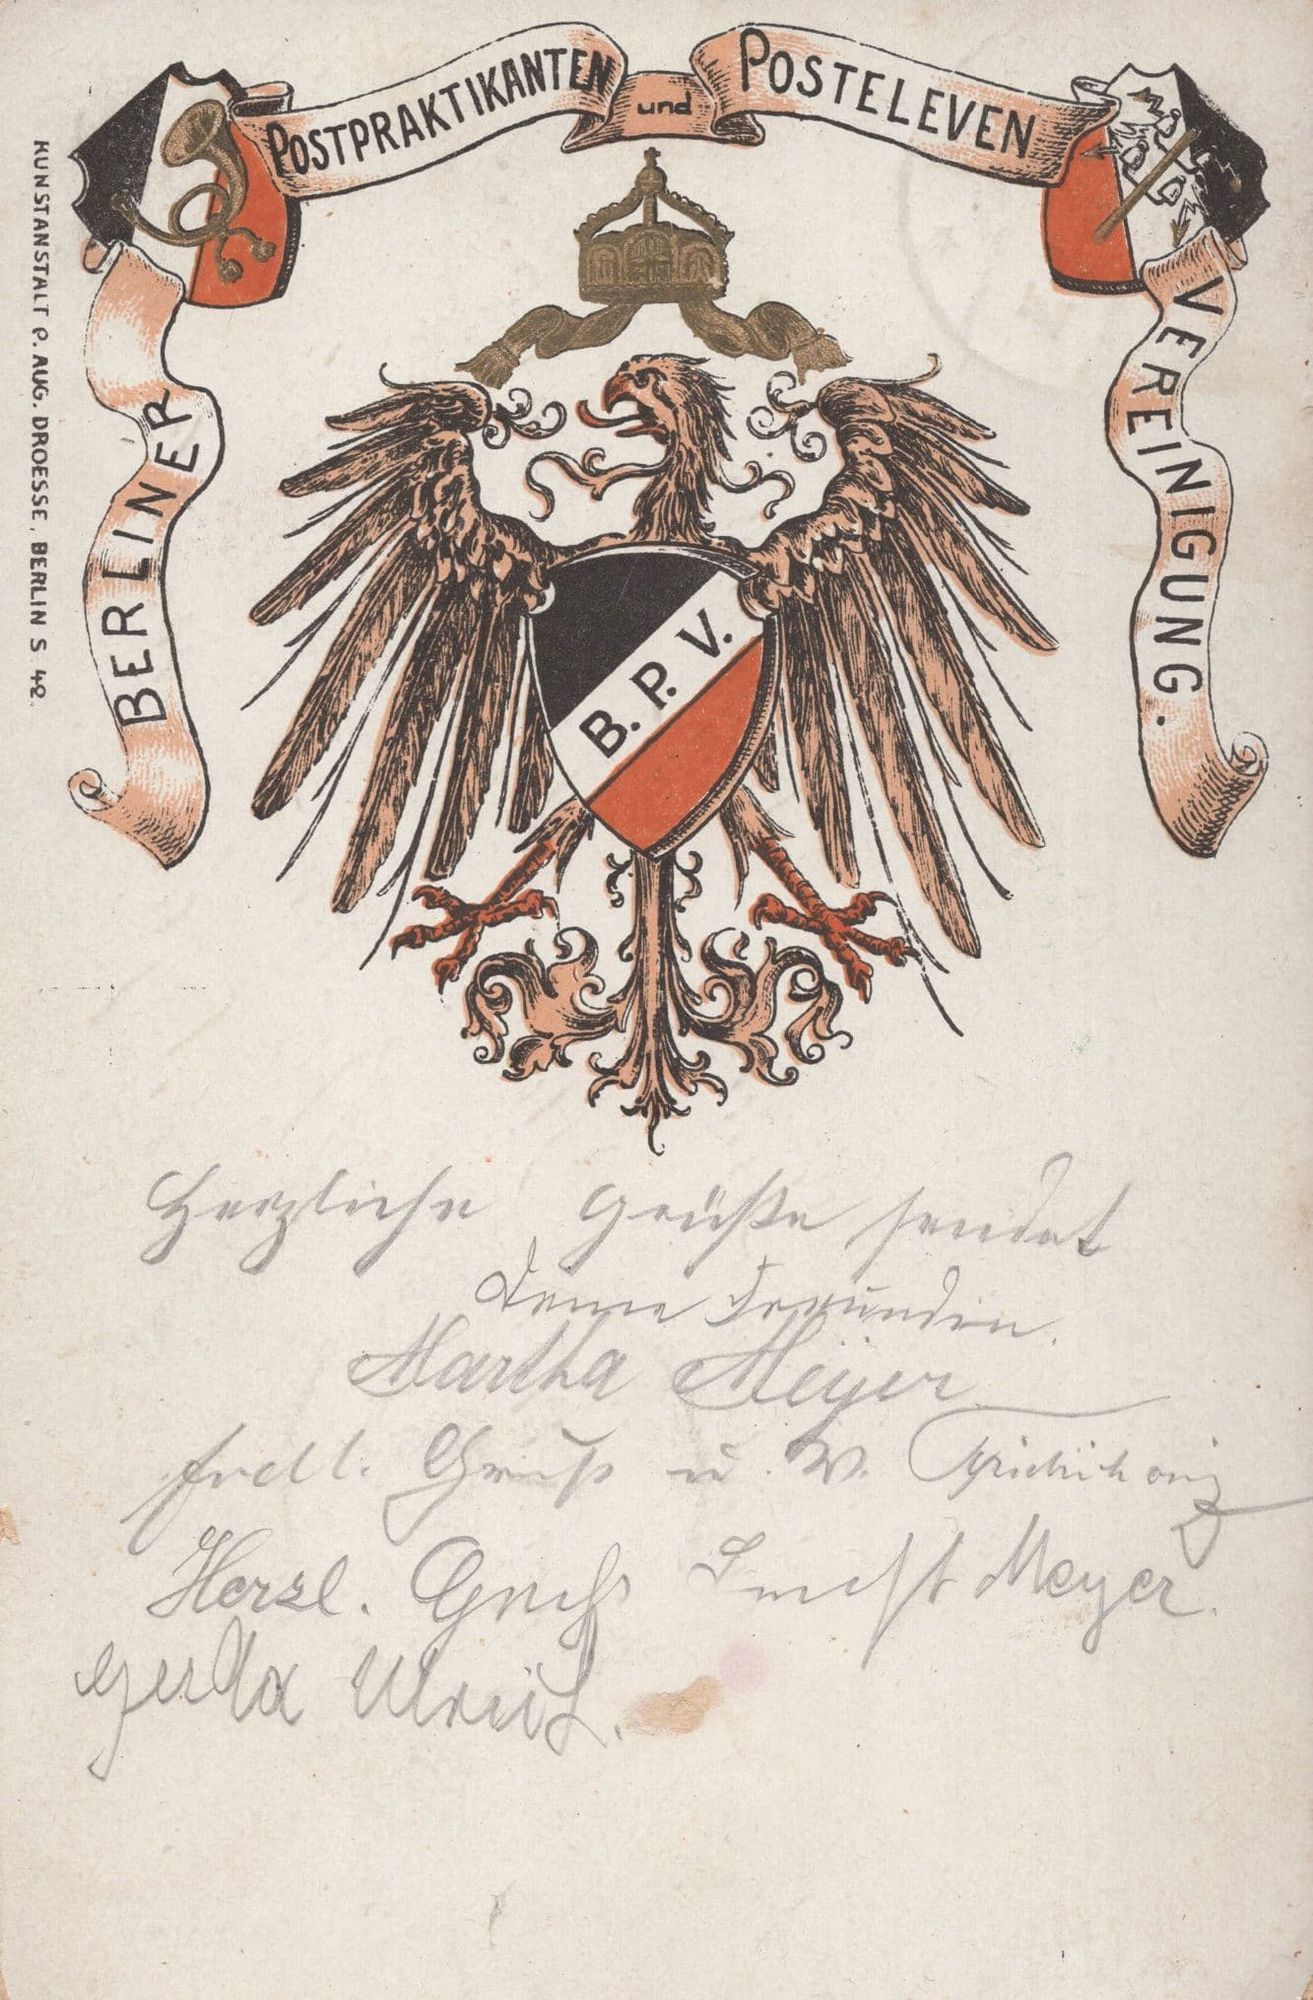 BERLINER
POSTPRAKTIKANTEN und POSTELEVEN
VEREINIGUNG.
KUNSTANSTALT P. AUG. DROESSE, BERLIN S 42.
B. P. V.
Herzliche Grüße sendet
Deine Freundin.
Martha Meyer
frdl. Gruß u. W.
Herzl. Gruß Meyer.
Gerda